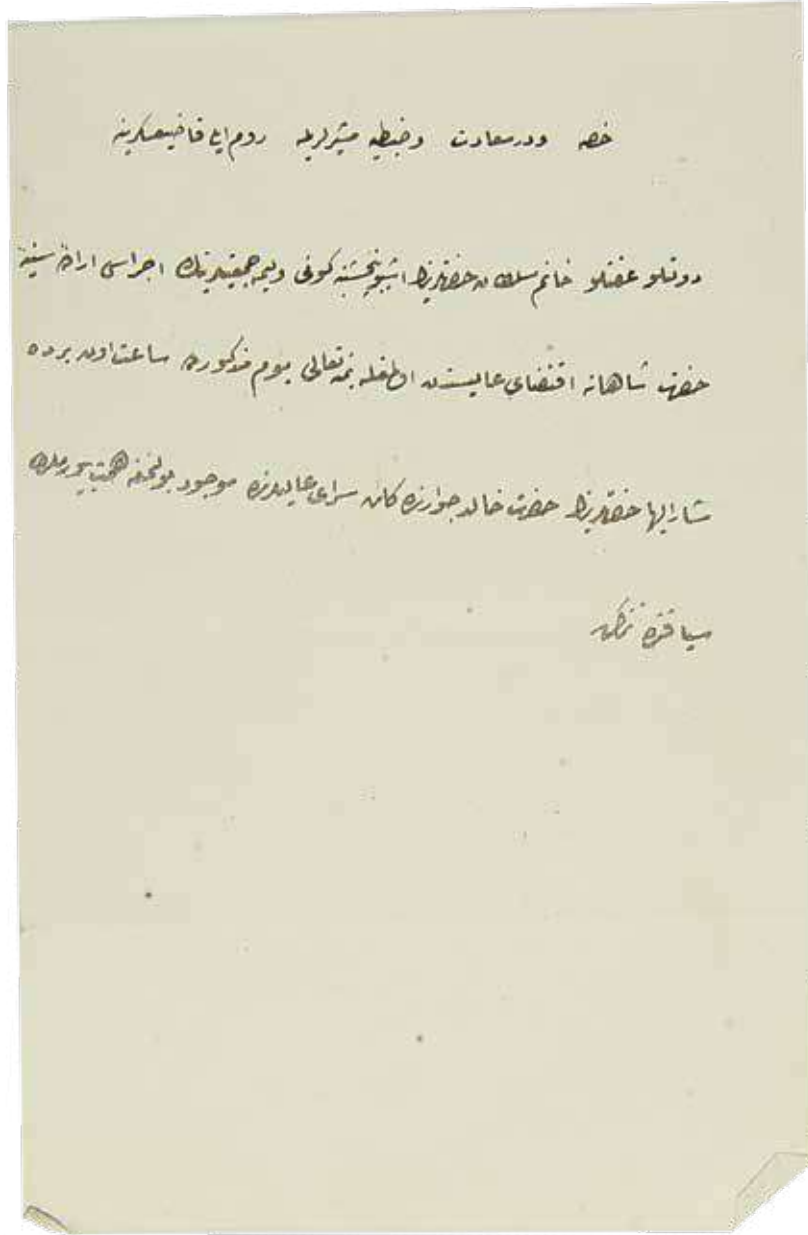 خاصه ودرسعادت وضبطیه مشیرلریله روم ایلی قاضیعسکرینه
دولتلو عفتلو خانم سلطان حضرتلرینك اشبو پنجشنبه كونی ولیمه جمعیتلرینك اجراسی اراده سنیۀ
حضرت شاهانه اقتضای عالیسندن اولمغله بمنه تعالی یوم مذكورده ساعت اون برده
مشارالیها حضرتلرینك حضرت خالد جوارنده كائن سرای عالیلرنده موجود بولنمغه همت بیورملری
سیاقنده تذكره